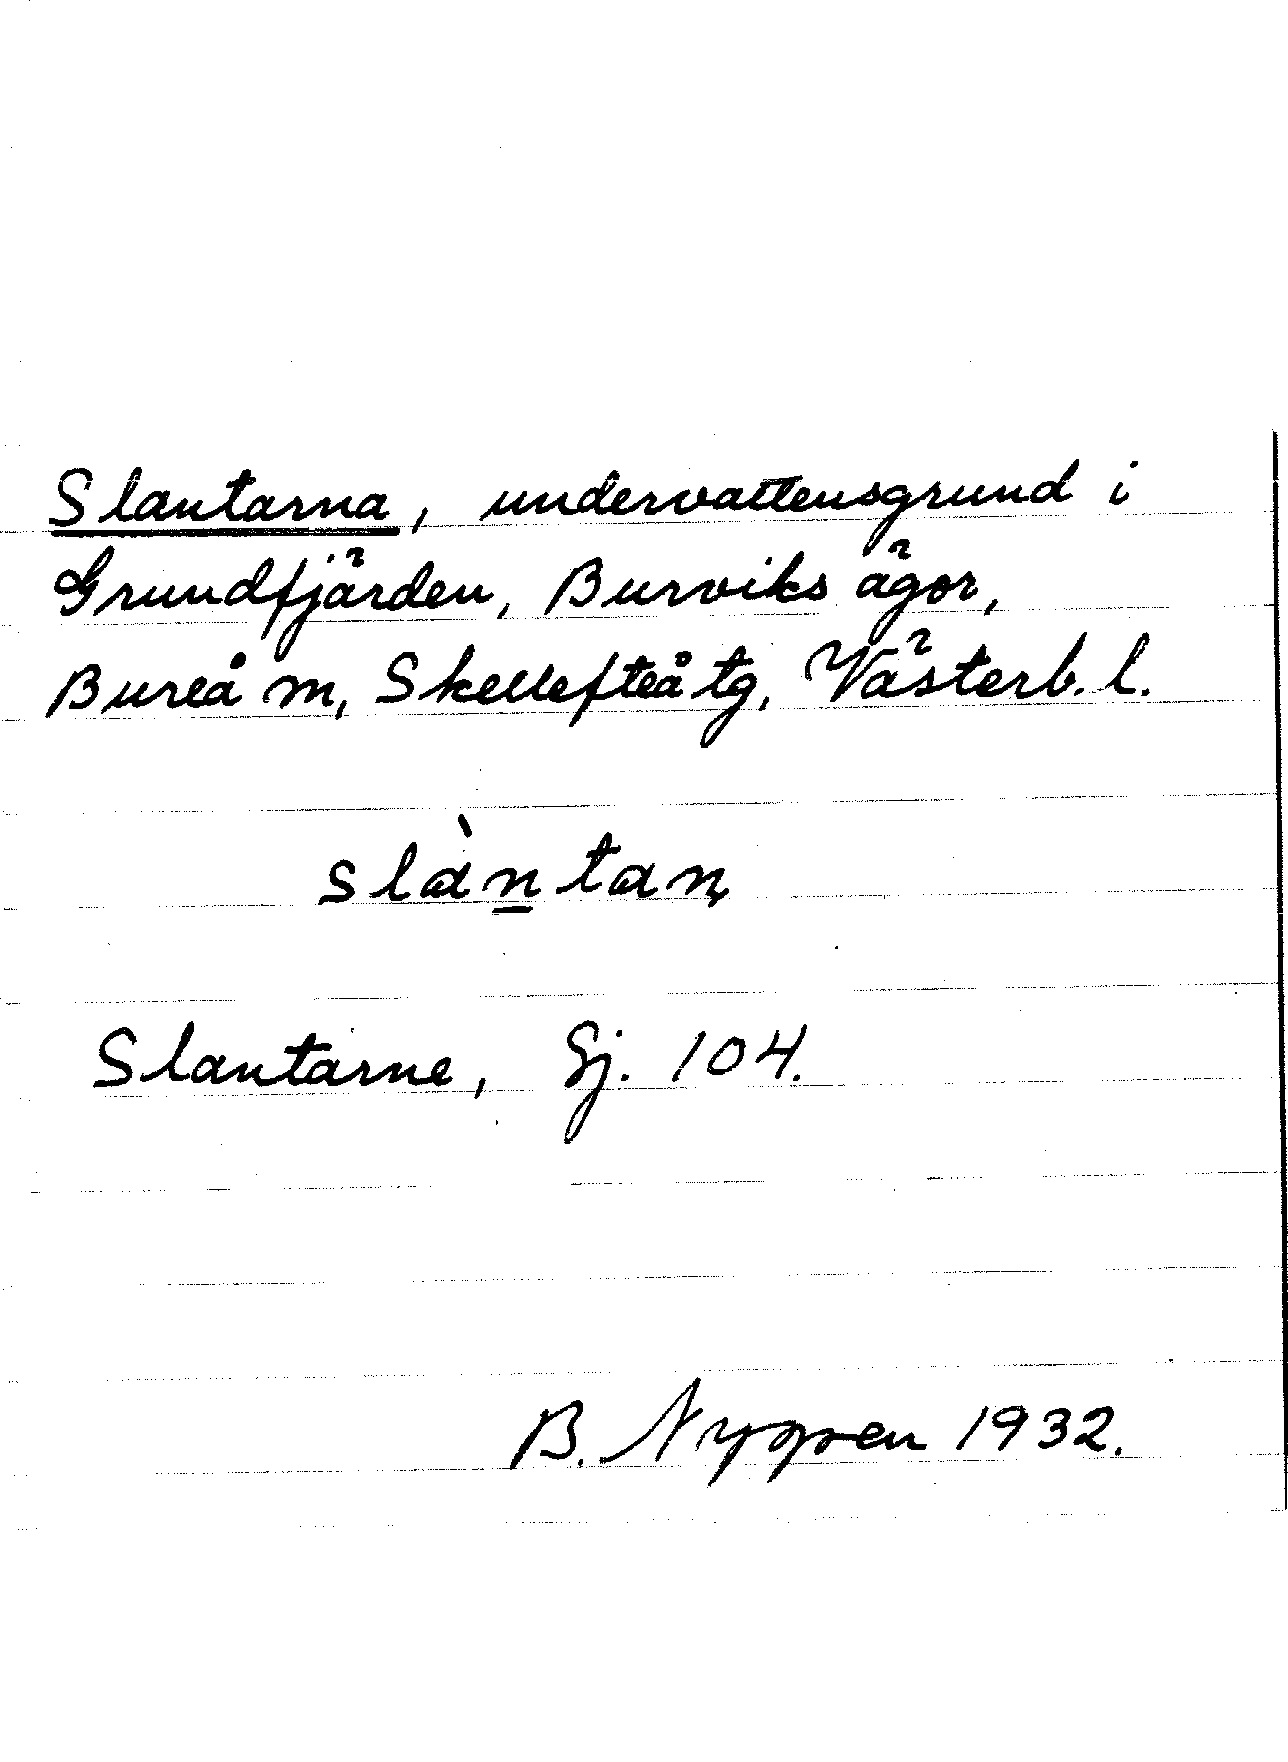 Slantarna, undervattensgrund i
Grundfjärden, Burviks ägor,
Bureå m, Skellefteå tg, Västerb. l.
slàn̲taṇ
Slantarne, Sj. 104.
B. Nygren 1932.